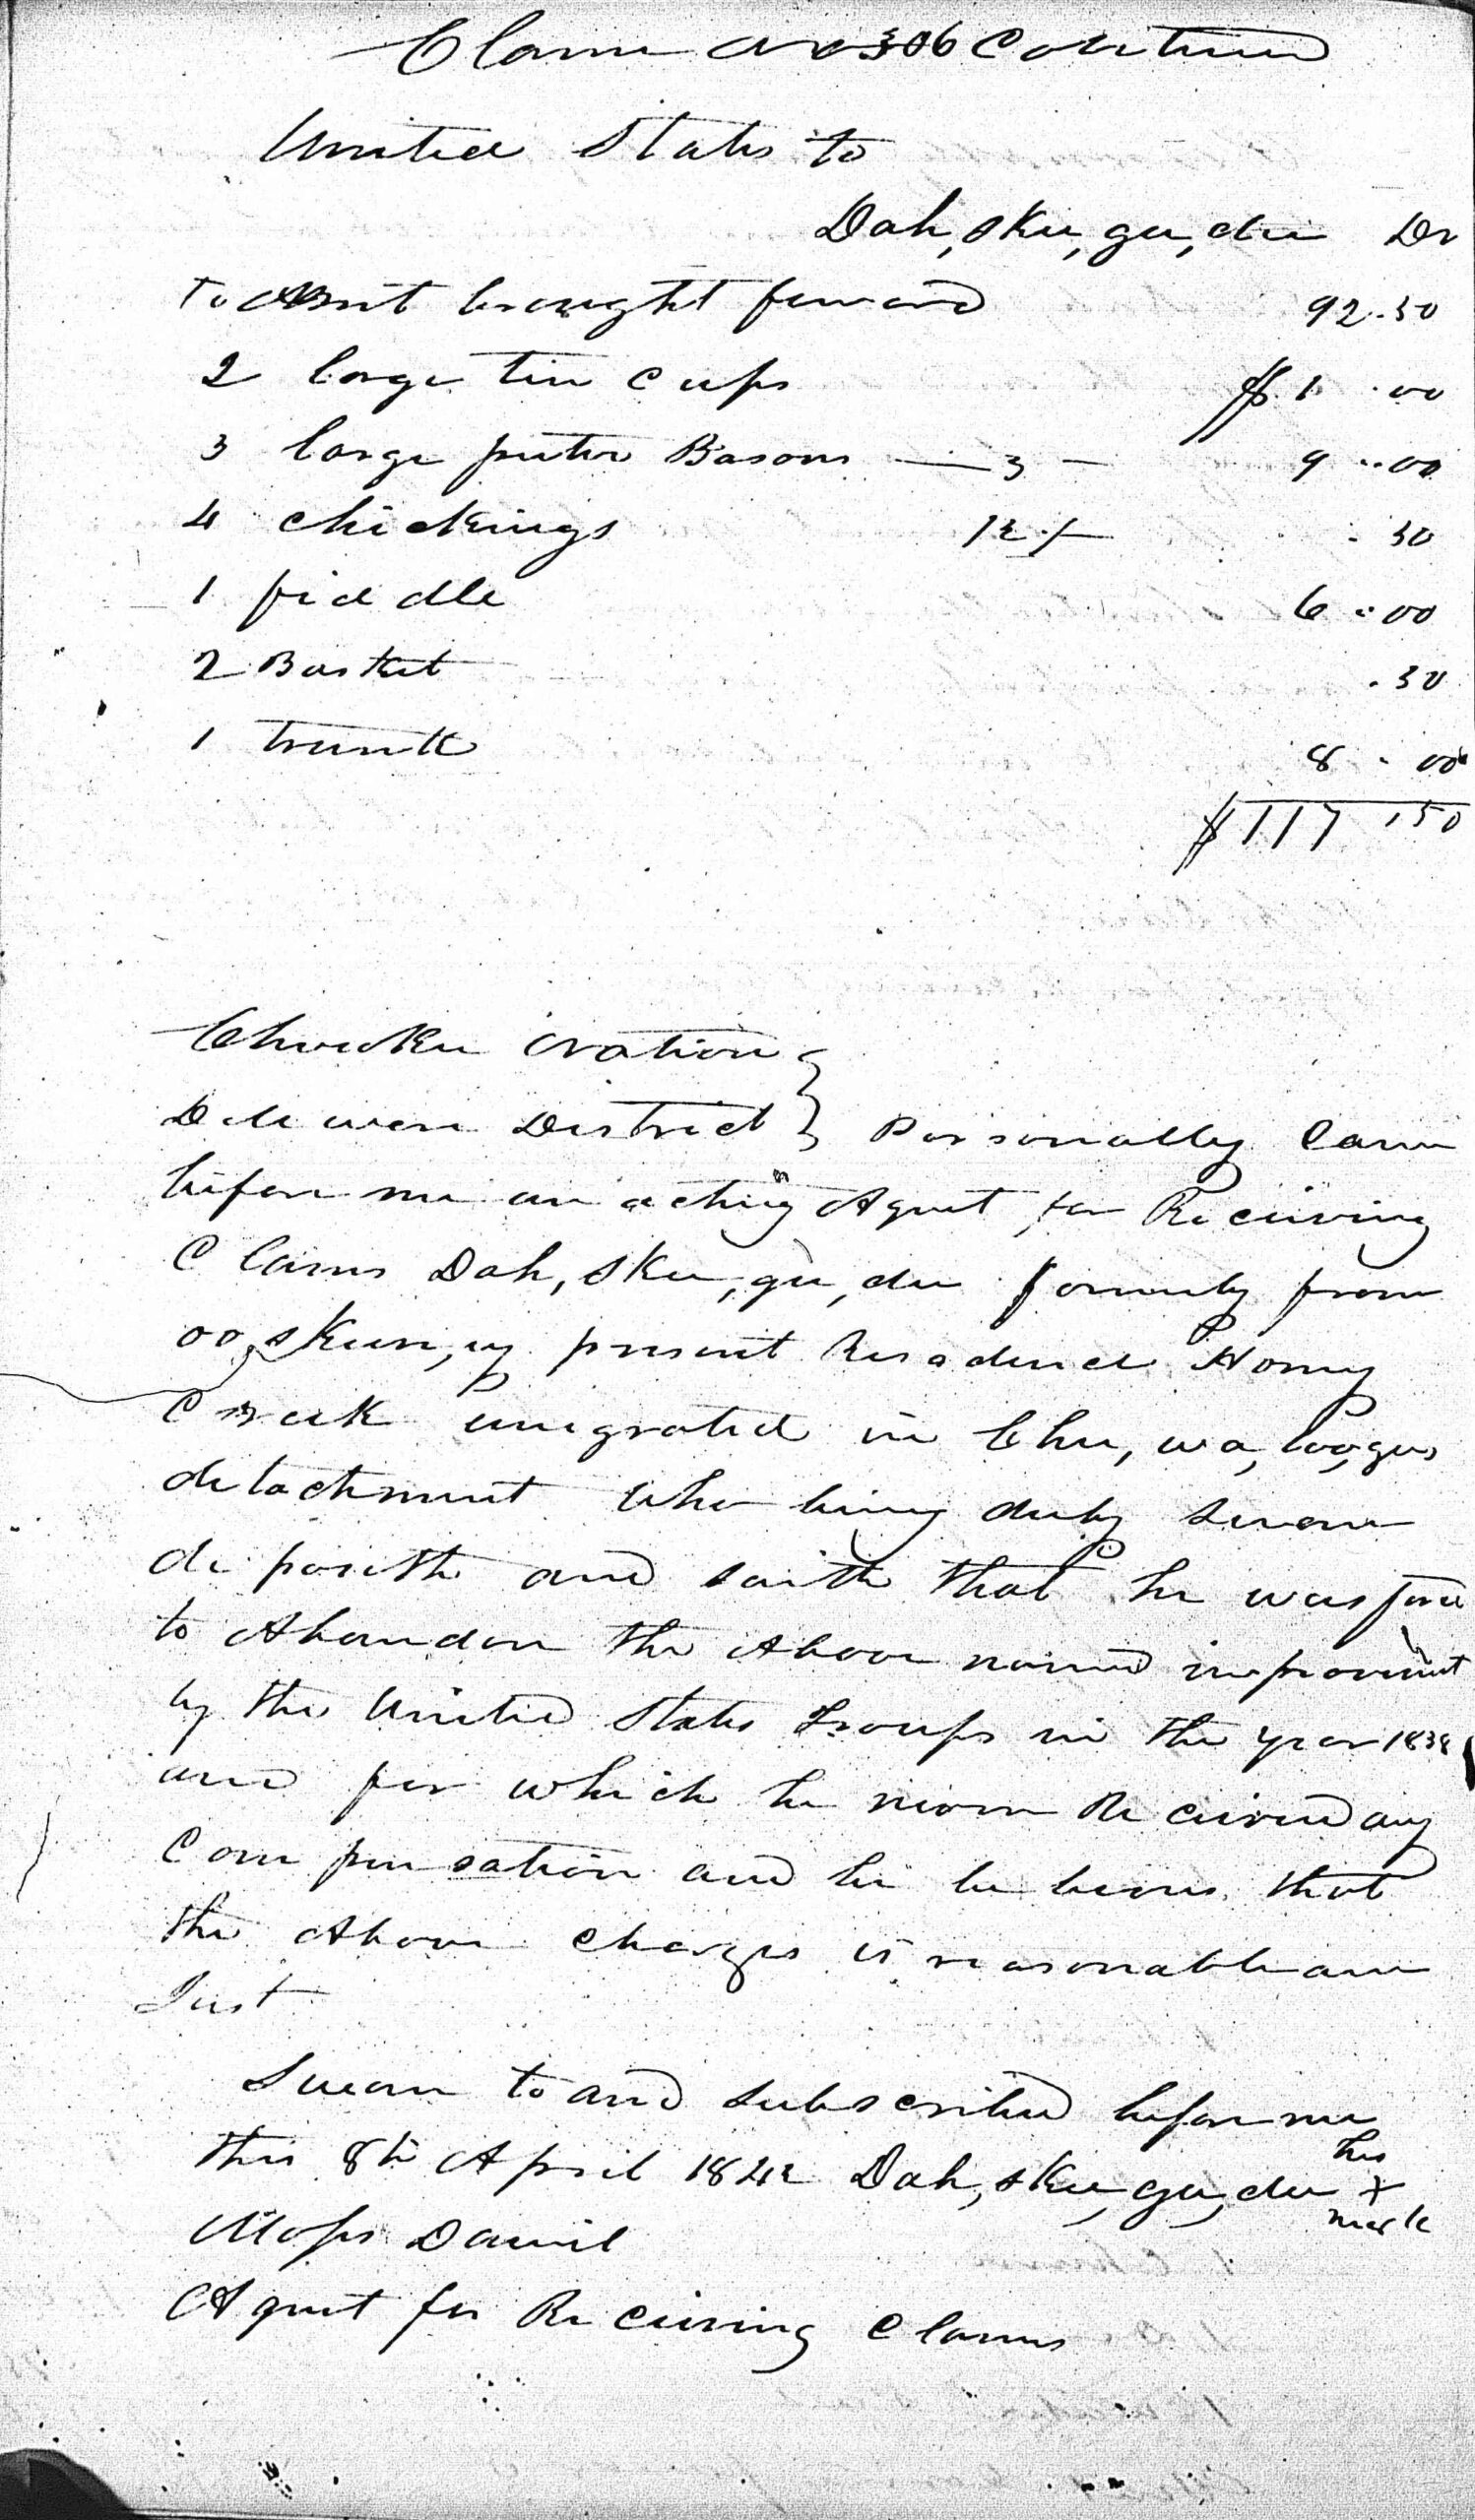 Claim No 306 Continued
United States to
Dah, skee, gee, dee Dr
To Amt brought forward 92.50
2 large tin cups $1.00
3 large puter Basons — 3 — 9.00
4 chickings 12/- .50
1 fiddle 6.00
2 Basket .50
1 trunk 8.00
$117.50
Cherokee Nation }
Delaware District } Personally came
before me an acting Agent for Receiving
Claims Dah, skee, gee, dee formerly from
present Residence Hony
Creek emigrated in Choo, wa, loo,gees
detachment who being duly sworn
deposeth and saith that he was force
to Abandon the Above named improvement
by the United States Troops in the year 1838
and for which he never Received any
Compensation and he believes that
the Above charges is reasonable and
Just
Sworn to and subscribed before me
this 8th April 1842 Dah, skee, gee, dee his x mark
Moses Daniel
Agent for Receiving Claims